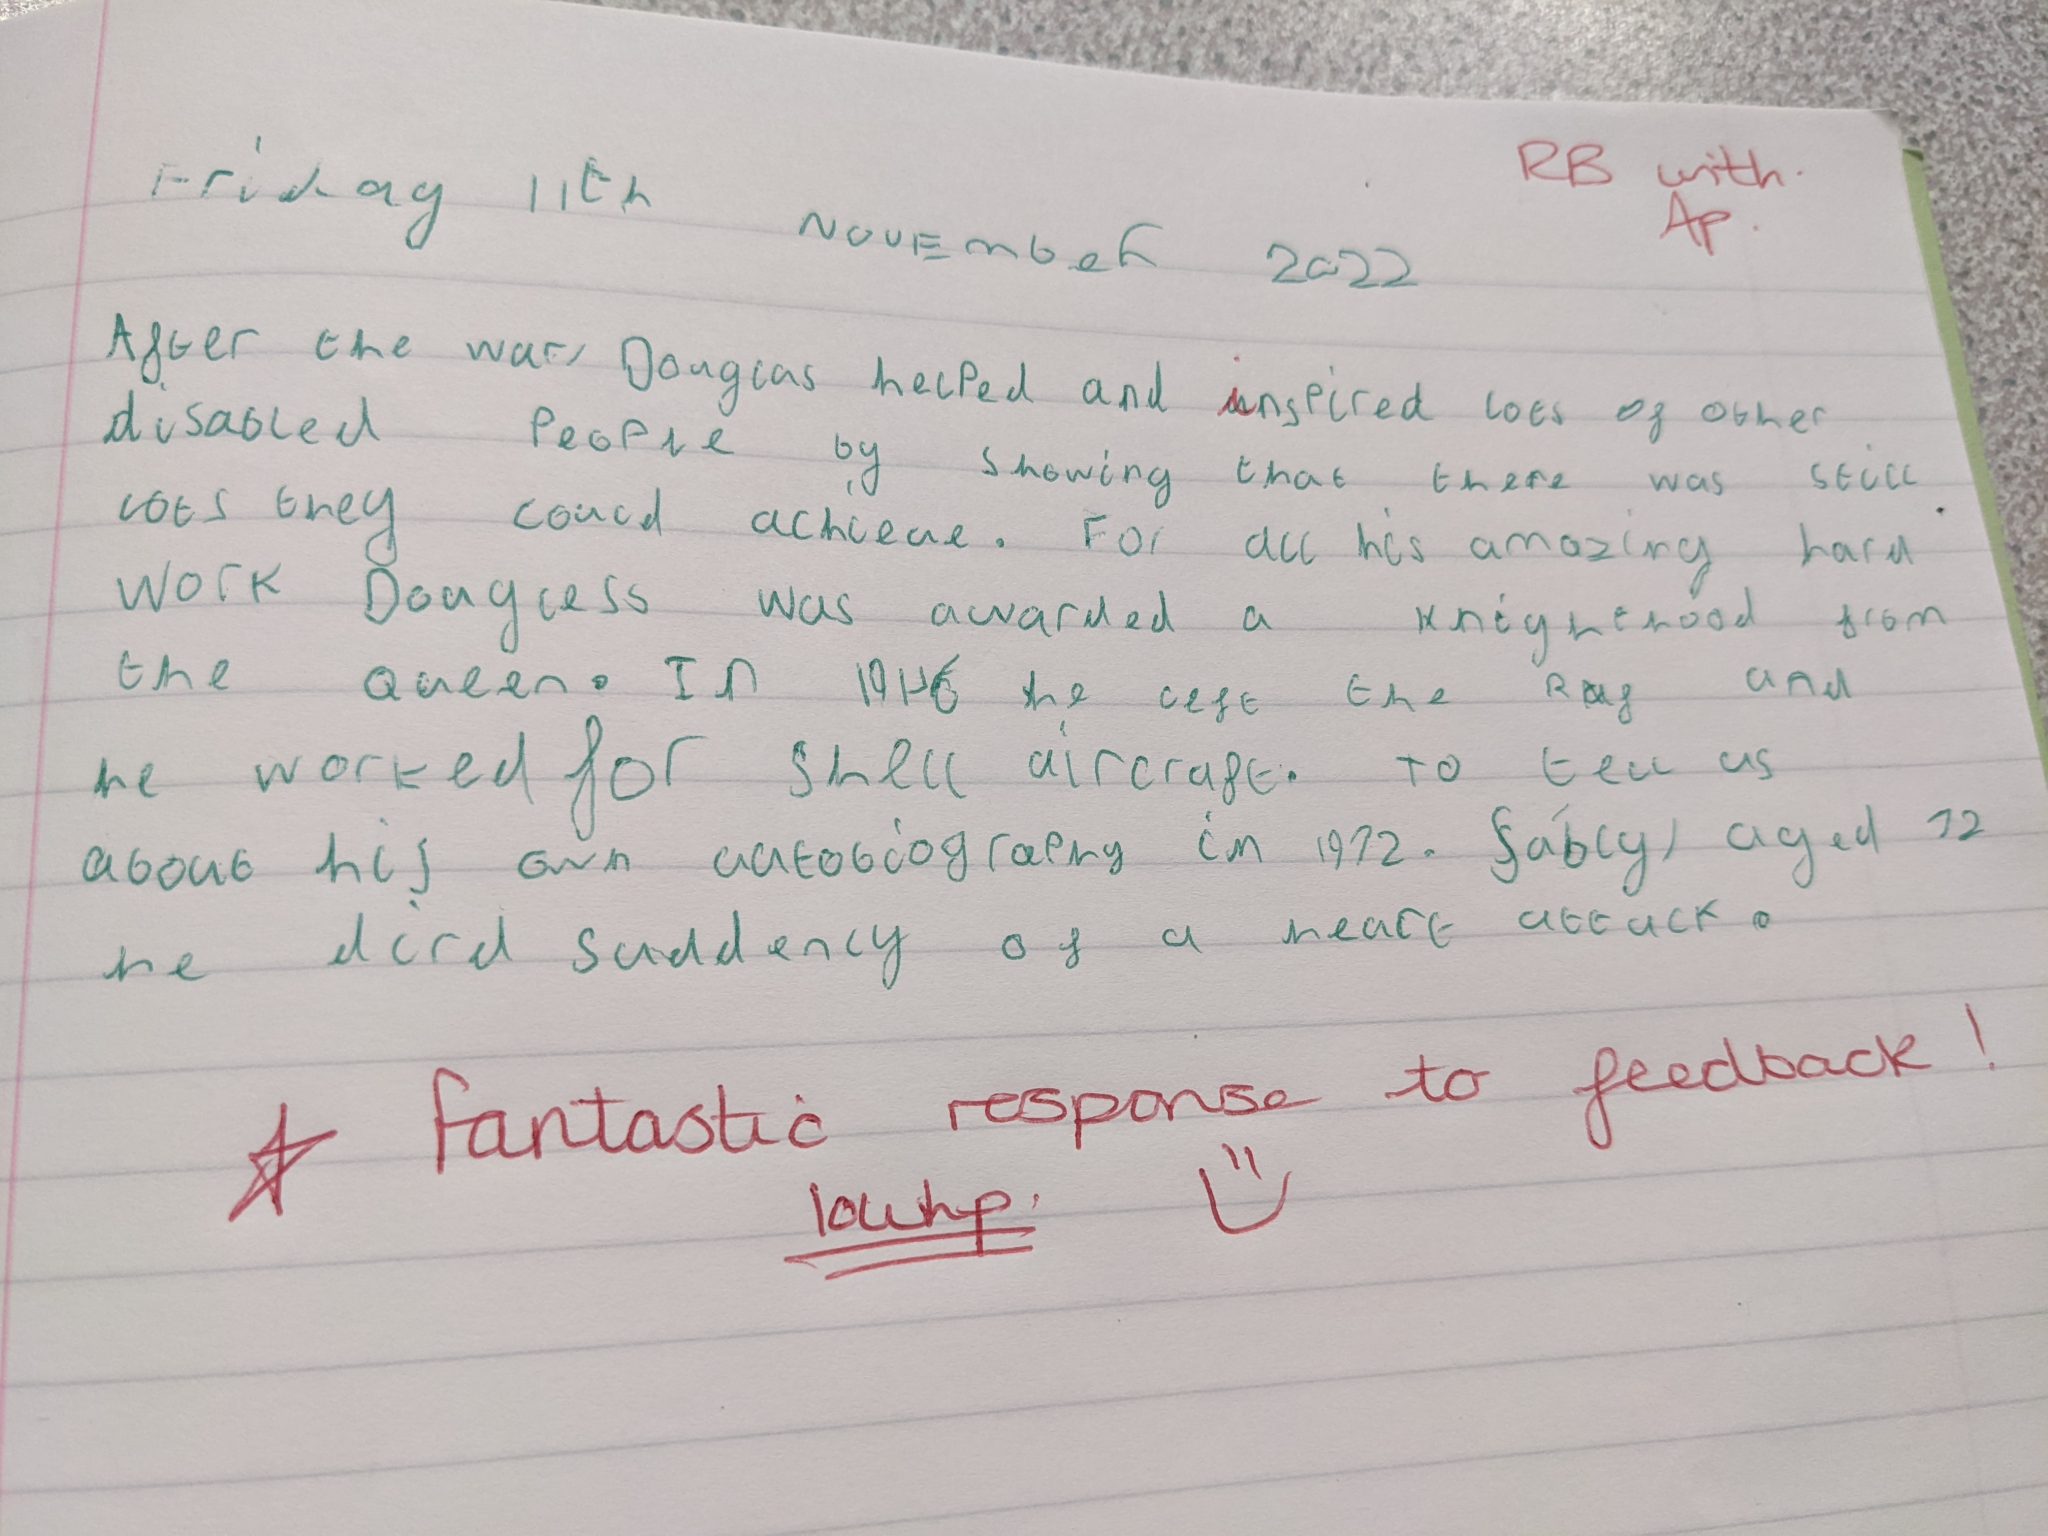 Friday 11th November 2022
RB with
Ap.
After the war, Douglas helped and inspired lots of other
disabled people by showing that there was still
lots they could achieve. For all his amazing hard
work Dougless was awarded a knighthood from
the Queen. In 1946 he left the Raf and
he worked for shell aircraft. To tell us
about his own autobiography in 1972. Sably, aged 72
he dird suddenly of a heart attack.
Fantastic response to feedback!